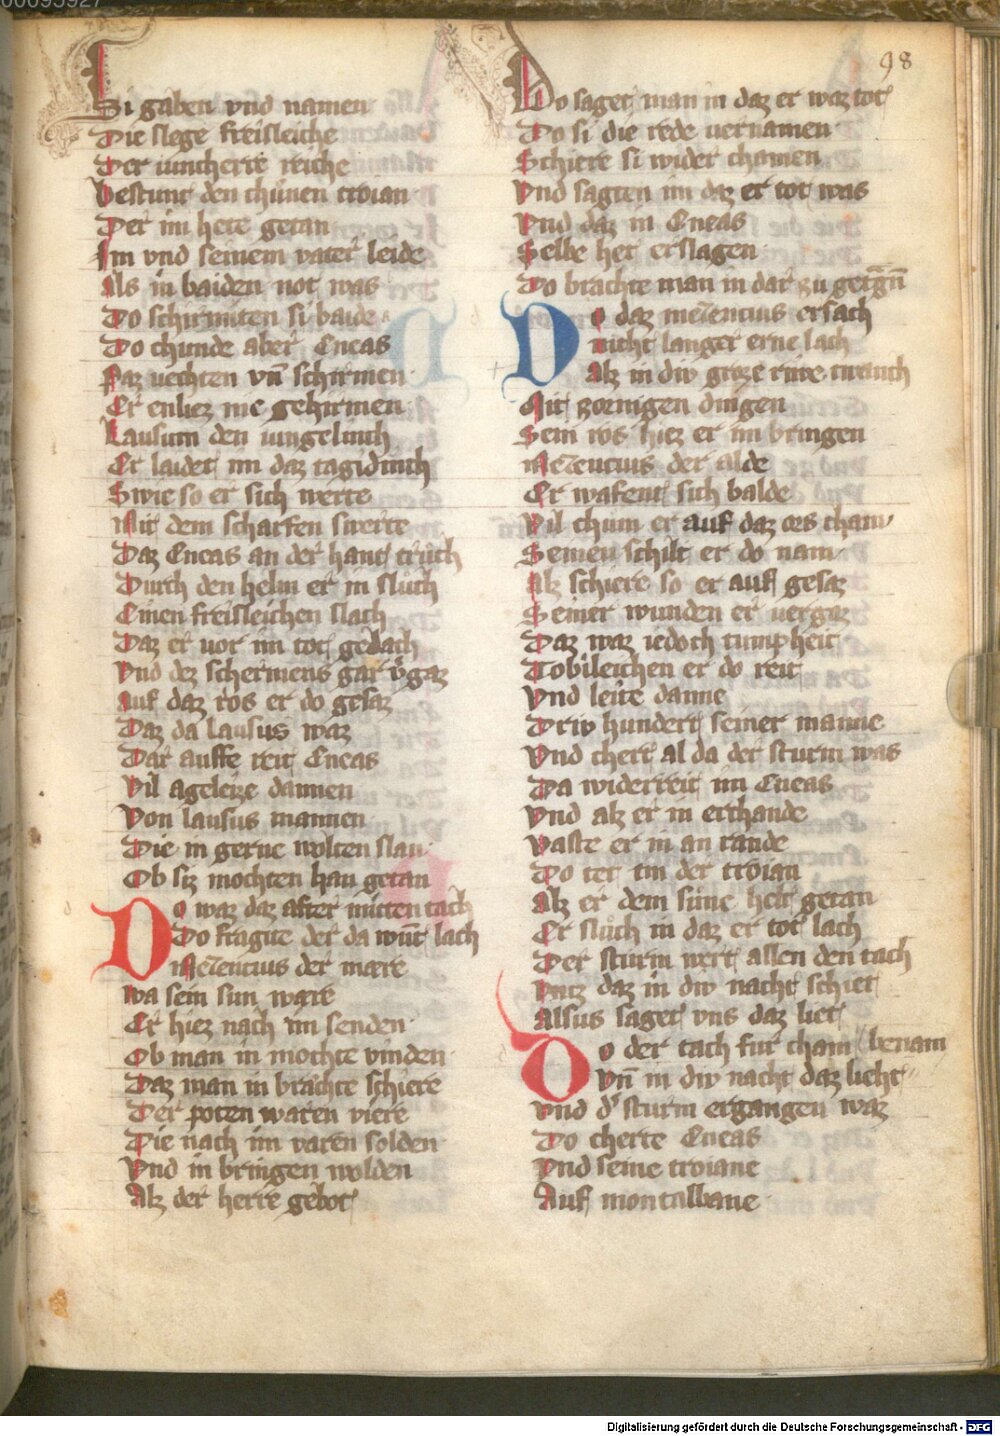 00095927
98
Si gaben vnd namen
Die slege freisleiche
Der iuncherre reiche
Bestunt den chunen troian
Der im hete getan
Im vnd seinem vater leide
Als in baiden not was
Do schirmten si baide
Do chunde aber Eneas
Paz vechten vn̄ schirmen
Er enliez nie gehirmen
Lausum den iungelinch
Er laidet im daz tagidinch
Swie so er sich werte
Mit dem scharfen swerte
Daz Eneas an der hant truch
Durch den helm er in sluch
Einen freisleichen slach
Daz er vor im tot gelach
Vnd dez schermens gar v̓gaz
Auf daz ros er do gesaz
Daz da lausus waz
Dar auffe reit Eneas
Vil ageleize dannen
Von lausus mannen
Die in gerne wolten slan
Ob siz mochten han getan
Do waz daz after mitten tach
Do fragte der da wu̅t lach
Mecencius der mære
Wa sein sun wære
Er hiez nach im senden
Ob man in mochte vinden
Daz man in bræchte schiere
Der poten waren viere
Die nach im varen solden
Vnd in bringen wolden
Alz der herre gebot
Do saget man in daz er waz tot
Do si die rede vernamen
Schiere si wider chamen
Vnd sagten im daz er tot was
Vnd daz in Eneas
Selbe het erslagen
Do brachte man in dar zu getragn̄
Do daz mecencius ersach
nicht langer er ne lach
Alz in div groze riwe twanch
Mit zornigen dingen
Sein ros hiez er im bringen
Mecencius der alde
Er wafent sich balde
Vil chum er auf daz ors cham
Seinen schilt er do nam
Alz schiere so er auf gesaz
Seiner wunden er vergaz
Daz waz iedoch tumpheit
Tobileichen er do reit
Vnd leite danne
Driv hundert seiner manne
Vnd chert al da der sturm was
Da widerreit im Eneas
Vnd alz er in erchande
Vaste er in an rande
Do tet im der troian
Alz er dem sune het getan
Er sluch in daz er tot lach
Der sturm wert allen den tach
Vntz daz in div nacht schiet
Alsus saget vns daz liet
Do der tach fur cham // benam
Vn̄ in div nacht daz liecht //
Vnd d̓ sturm ergangen waz
Do cherte Eneas
Vnd seine troiane
Auf montalbane
Digitalisierung gefördert durch die Deutsche Forschungsgemeinschaft - DFG